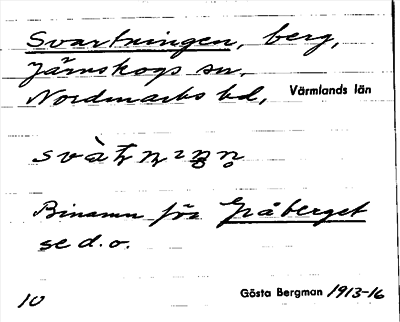 Svartningen, berg,
Järnskogs sn.
Nordmarks hd, Värmlands län
Binamn för Gråberget
se d.o.
10 Gösta Bergman 1913-16